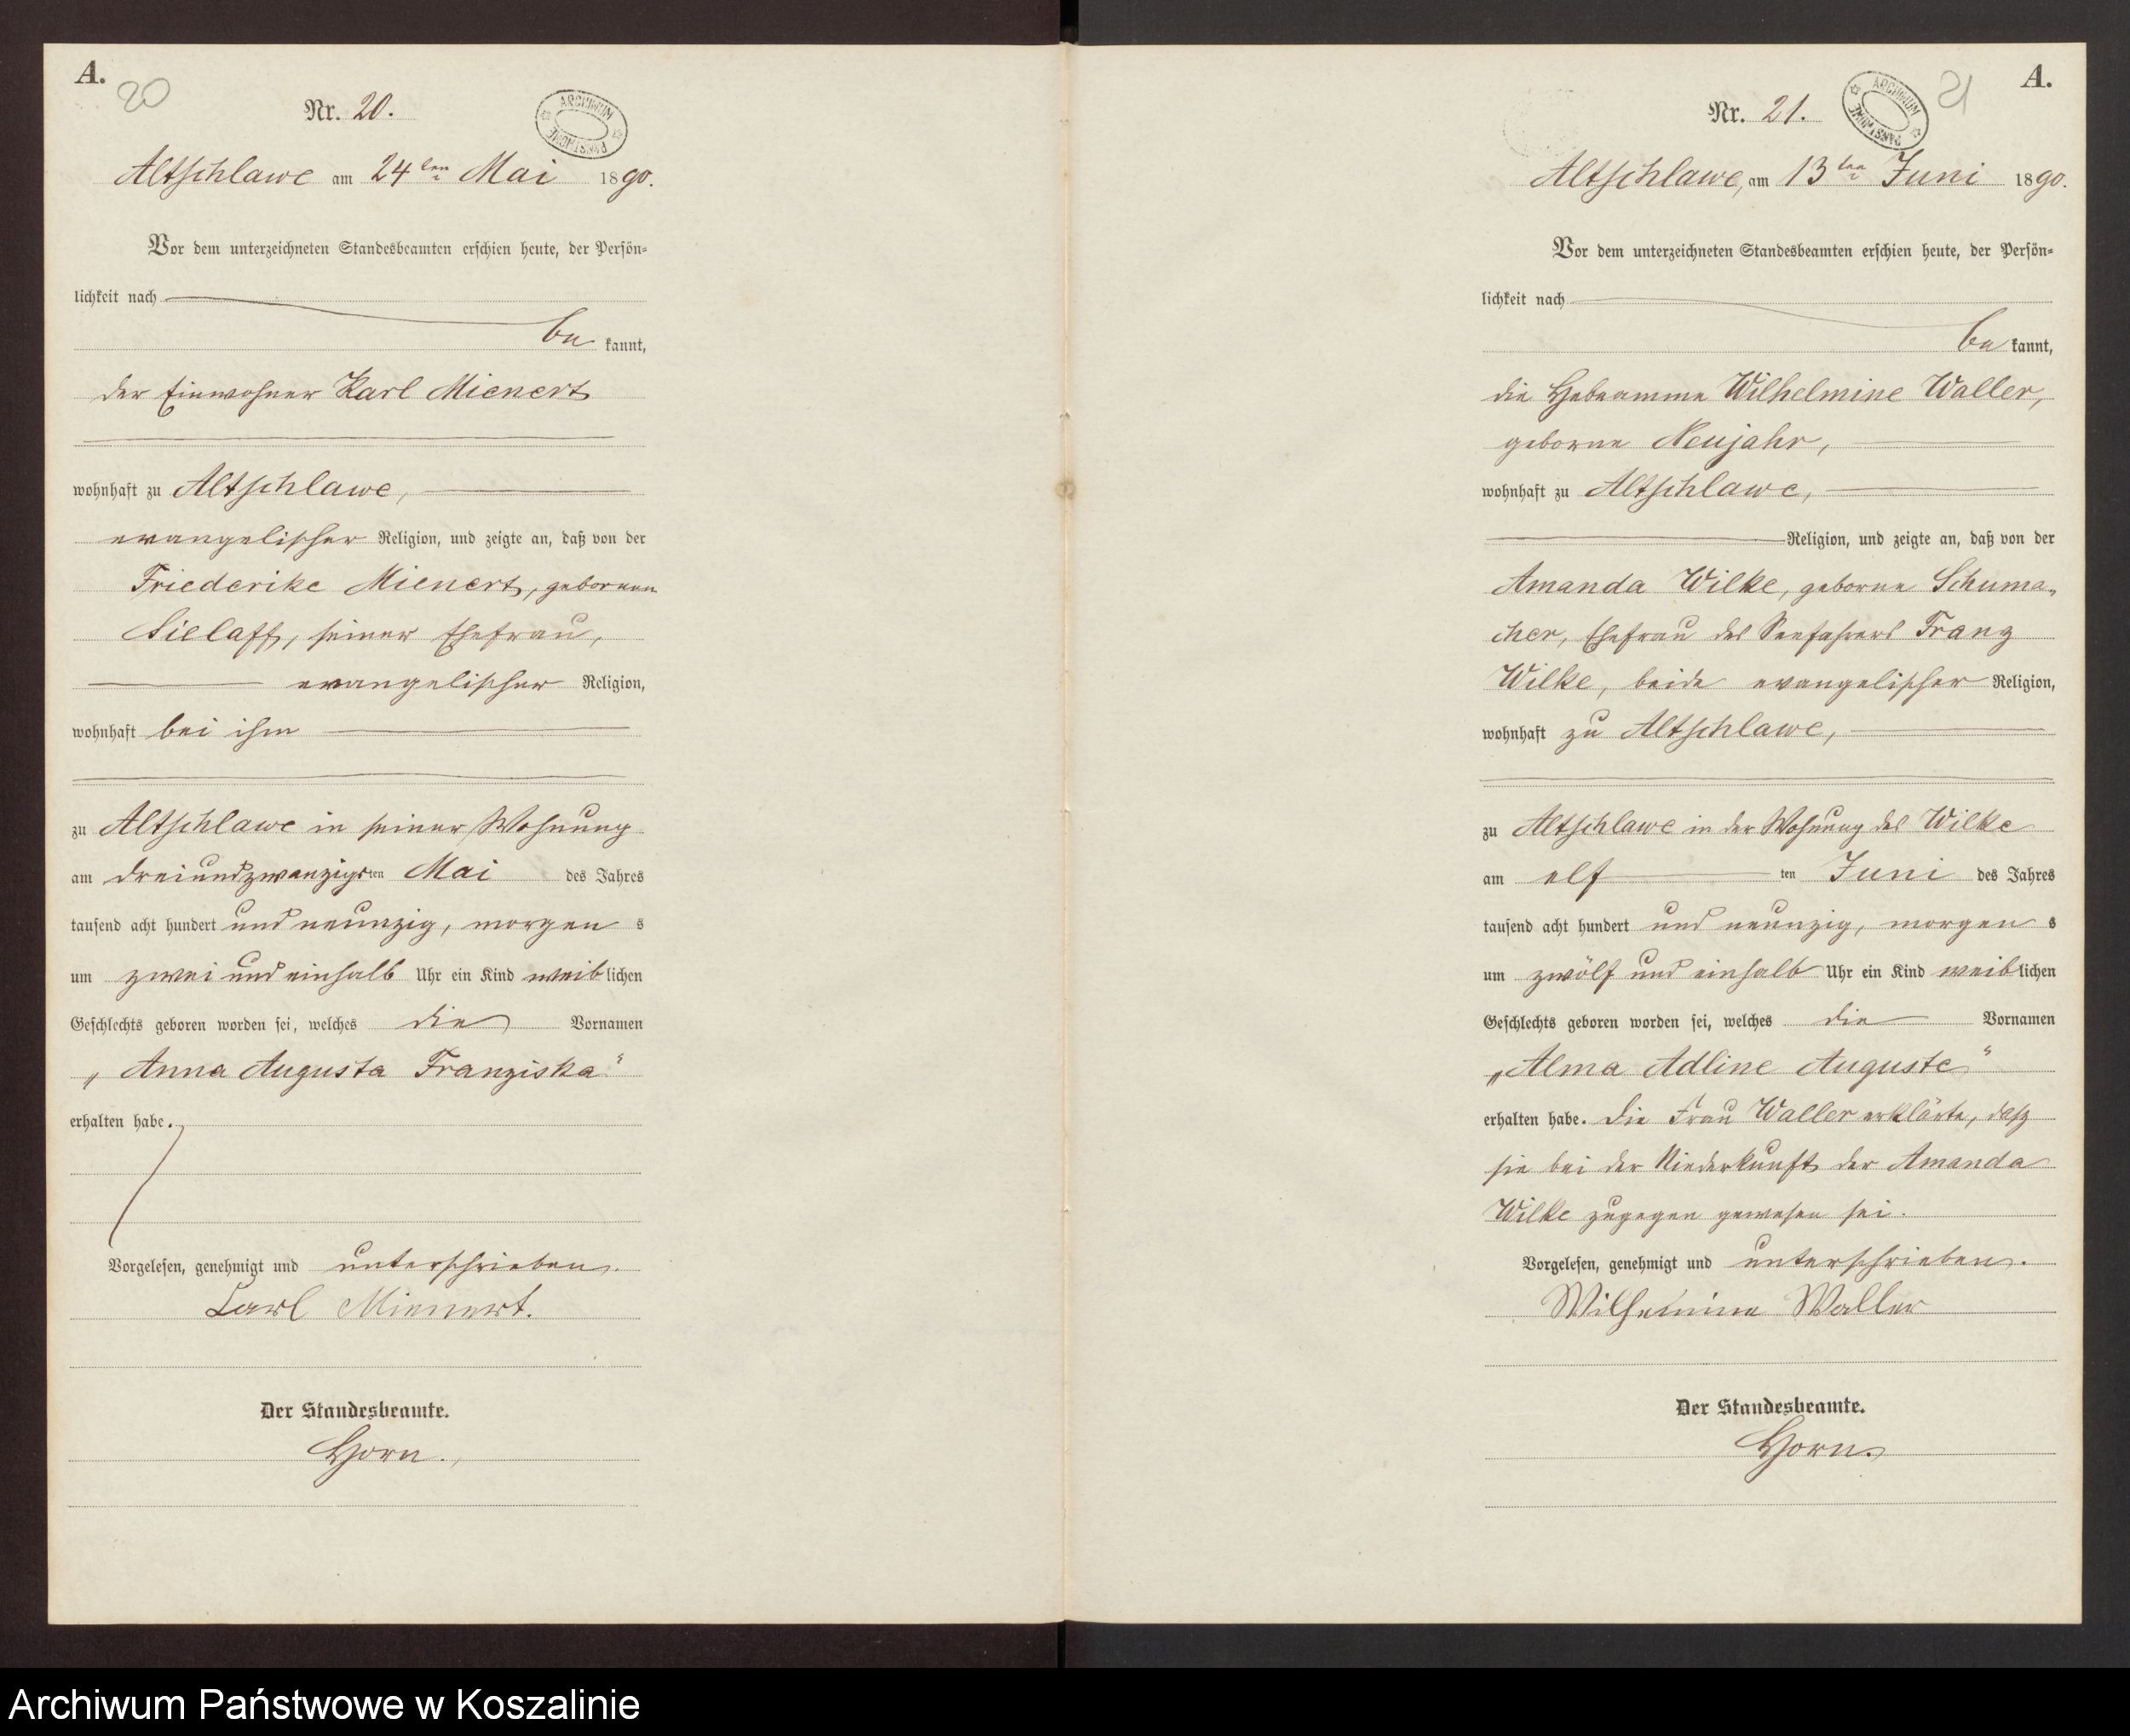 A.
20
Nr. 20.
ARCHIWUM PAŃSTWOWE
Altschlawe am 24ten Mai 1890.
Vor dem unterzeichneten Standesbeamten erschien heute, der Persön-
lichkeit nach
be kannt,
der Einwohner Karl Mienert
wohnhaft zu Altschlawe,
evangelischer Religion, und zeigte an, daß von der
Friederike Mienert, gebornen
Sielaff, seiner Ehefrau,
evangelischer Religion,
wohnhaft bei ihm
zu Altschlawe in seiner Wohnung
am dreiundzwanzigsten Mai des Jahres
tausend acht hundert und neunzig, morgens
um zwei und einhalb Uhr ein Kind weiblichen
Geschlechts geboren worden sei, welches die Vornamen
„Anna Augusta Franziska“
erhalten habe.
Vorgelesen, genehmigt und unterschrieben.
Carl Mienert.
Der Standesbeamte.
Horn.
A.
21
Nr. 21.
ARCHIWUM PAŃSTWOWE
Altschlawe, am 13ten Juni 1890.
Vor dem unterzeichneten Standesbeamten erschien heute, der Persön-
lichkeit nach
be kannt,
die Hebeamme Wilhelmine Waller,
geborne Neujahr,
wohnhaft zu Altschlawe,
Religion, und zeigte an, daß von der
Amanda Wilke, geborne Schuma-
cher, Ehefrau des Seefahrers Franz
Wilke, beide evangelischer Religion,
wohnhaft zu Altschlawe,
zu Altschlawe in der Wohnung des Wilke
am elf ten Juni des Jahres
tausend acht hundert und neunzig, morgens
um zwölf und einhalb Uhr ein Kind weiblichen
Geschlechts geboren worden sei, welches die Vornamen
„Alma Adline Auguste“
erhalten habe. Die Frau Waller erklärte, daß
sie bei der Niederkunft der Amanda
Wilke zugegen gewesen sei.
Vorgelesen, genehmigt und unterschrieben.
Wilhemine Waller
Der Standesbeamte.
Horn.
Archiwum Państwowe w Koszalinie